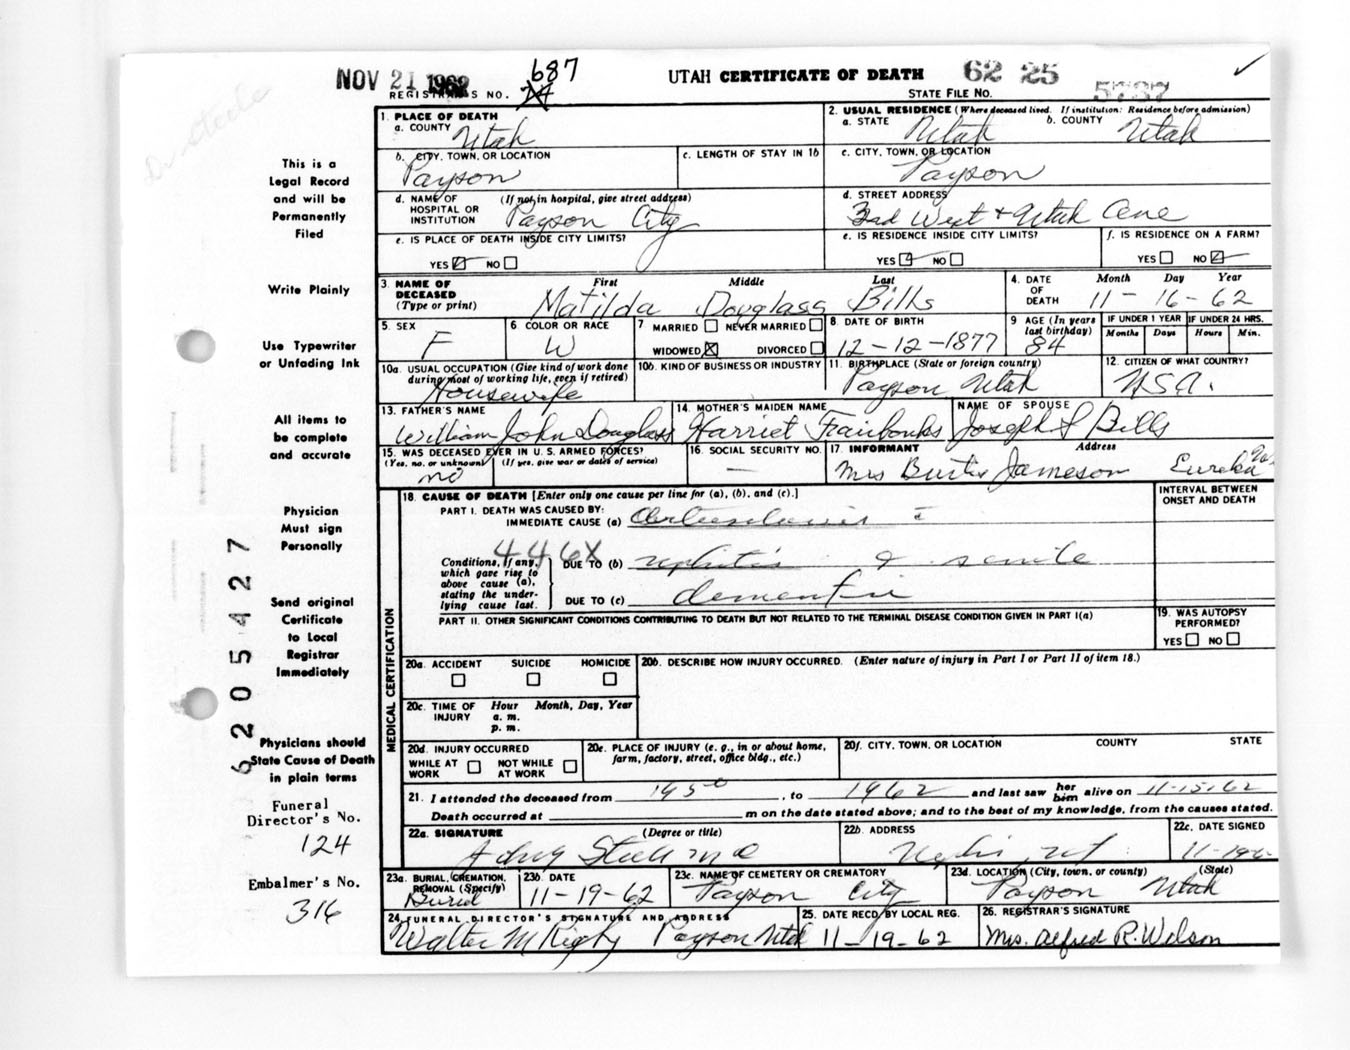 NOV 21 1962
687
UTAH CERTIFICATE OF DEATH
62 25
REGISTRAR'S NO. 74
STATE FILE NO. 5737
This is a
Legal Record
and will be
Permanently
Filed
Write Plainly
Use Typewriter
or Unfading Ink
All items to
be complete
and accurate
Physician
Must sign
Personally
Send original
Certificate
to Local
Registrar
Immediately
Physicians should
State Cause of Death
in plain terms
Funeral
Director's No.
124
Embalmer's No.
316
6205427
1. PLACE OF DEATH
a. COUNTY Utah
2. USUAL RESIDENCE (Where deceased lived. If institution: Residence before admission)
a. STATE Utah b. COUNTY Utah
b. CITY, TOWN, OR LOCATION
Payson
c. LENGTH OF STAY IN 1b
c. CITY, TOWN, OR LOCATION
Payson
d. NAME OF HOSPITAL OR INSTITUTION (If not in hospital, give street address)
Payson City
d. STREET ADDRESS
3rd West + Utah Ave
e. IS PLACE OF DEATH INSIDE CITY LIMITS?
YES NO
e. IS RESIDENCE INSIDE CITY LIMITS?
YES NO
f. IS RESIDENCE ON A FARM?
YES NO
3. NAME OF DECEASED (Type or print)
First Middle Last
Matilda Douglass Bills
4. DATE OF DEATH
Month Day Year
11-16-62
5. SEX
F
6. COLOR OR RACE
W
7 MARRIED NEVER MARRIED
WIDOWED X DIVORCED
8. DATE OF BIRTH
12-12-1877
9 AGE (In years last birthday)
84
IF UNDER 1 YEAR
Months Days
IF UNDER 24 HRS.
Hours Min.
10a. USUAL OCCUPATION (Give kind of work done during most of working life, even if retired)
Housewife
10b. KIND OF BUSINESS OR INDUSTRY
11. BIRTHPLACE (State or foreign country)
Payson Utah
12. CITIZEN OF WHAT COUNTRY?
USA.
13. FATHER'S NAME
William John Douglass
14. MOTHER'S MAIDEN NAME
Harriet Fairbanks
NAME OF SPOUSE
Joseph S Bills
15. WAS DECEASED EVER IN U.S. ARMED FORCES?
(Yes, no, or unknown) (If yes, give war or dates of service)
no
16. SOCIAL SECURITY NO.
—
17. INFORMANT Address
Mrs Burtis Jameson Eureka
MEDICAL CERTIFICATION
18. CAUSE OF DEATH [Enter only one cause per line for (a), (b), and (c).]
INTERVAL BETWEEN ONSET AND DEATH
PART I. DEATH WAS CAUSED BY:
IMMEDIATE CAUSE (a)
446X
Conditions, if any, which gave rise to above cause (a), stating the underlying cause last.
DUE TO (b) nephritis & senile
DUE TO (c) dementia
PART II. OTHER SIGNIFICANT CONDITIONS CONTRIBUTING TO DEATH BUT NOT RELATED TO THE TERMINAL DISEASE CONDITION GIVEN IN PART I(a)
19. WAS AUTOPSY PERFORMED?
YES NO
20a. ACCIDENT SUICIDE HOMICIDE
20b. DESCRIBE HOW INJURY OCCURRED. (Enter nature of injury in Part I or Part II of item 18.)
20c. TIME OF INJURY Hour Month, Day, Year
a. m.
p. m.
20d. INJURY OCCURRED
WHILE AT WORK NOT WHILE AT WORK
20e. PLACE OF INJURY (e. g., in or about home, farm, factory, street, office bldg., etc.)
20f. CITY, TOWN, OR LOCATION COUNTY STATE
21. I attended the deceased from 1950, to 1962 and last saw her him alive on 11-15-62
Death occurred at m on the date stated above; and to the best of my knowledge, from the causes stated.
22a. SIGNATURE (Degree or title)
22b. ADDRESS
22c. DATE SIGNED
23a. BURIAL, CREMATION, REMOVAL (Specify)
Burial
23b. DATE
11-19-62
23c. NAME OF CEMETERY OR CREMATORY
Payson City
23d. LOCATION (City, town, or county) (State)
Payson Utah
24. FUNERAL DIRECTOR'S SIGNATURE AND ADDRESS
Walter M Rigby Payson Utah
25. DATE RECD BY LOCAL REG.
11-19-62
26. REGISTRAR'S SIGNATURE
Mrs. Alfred R. Wilson